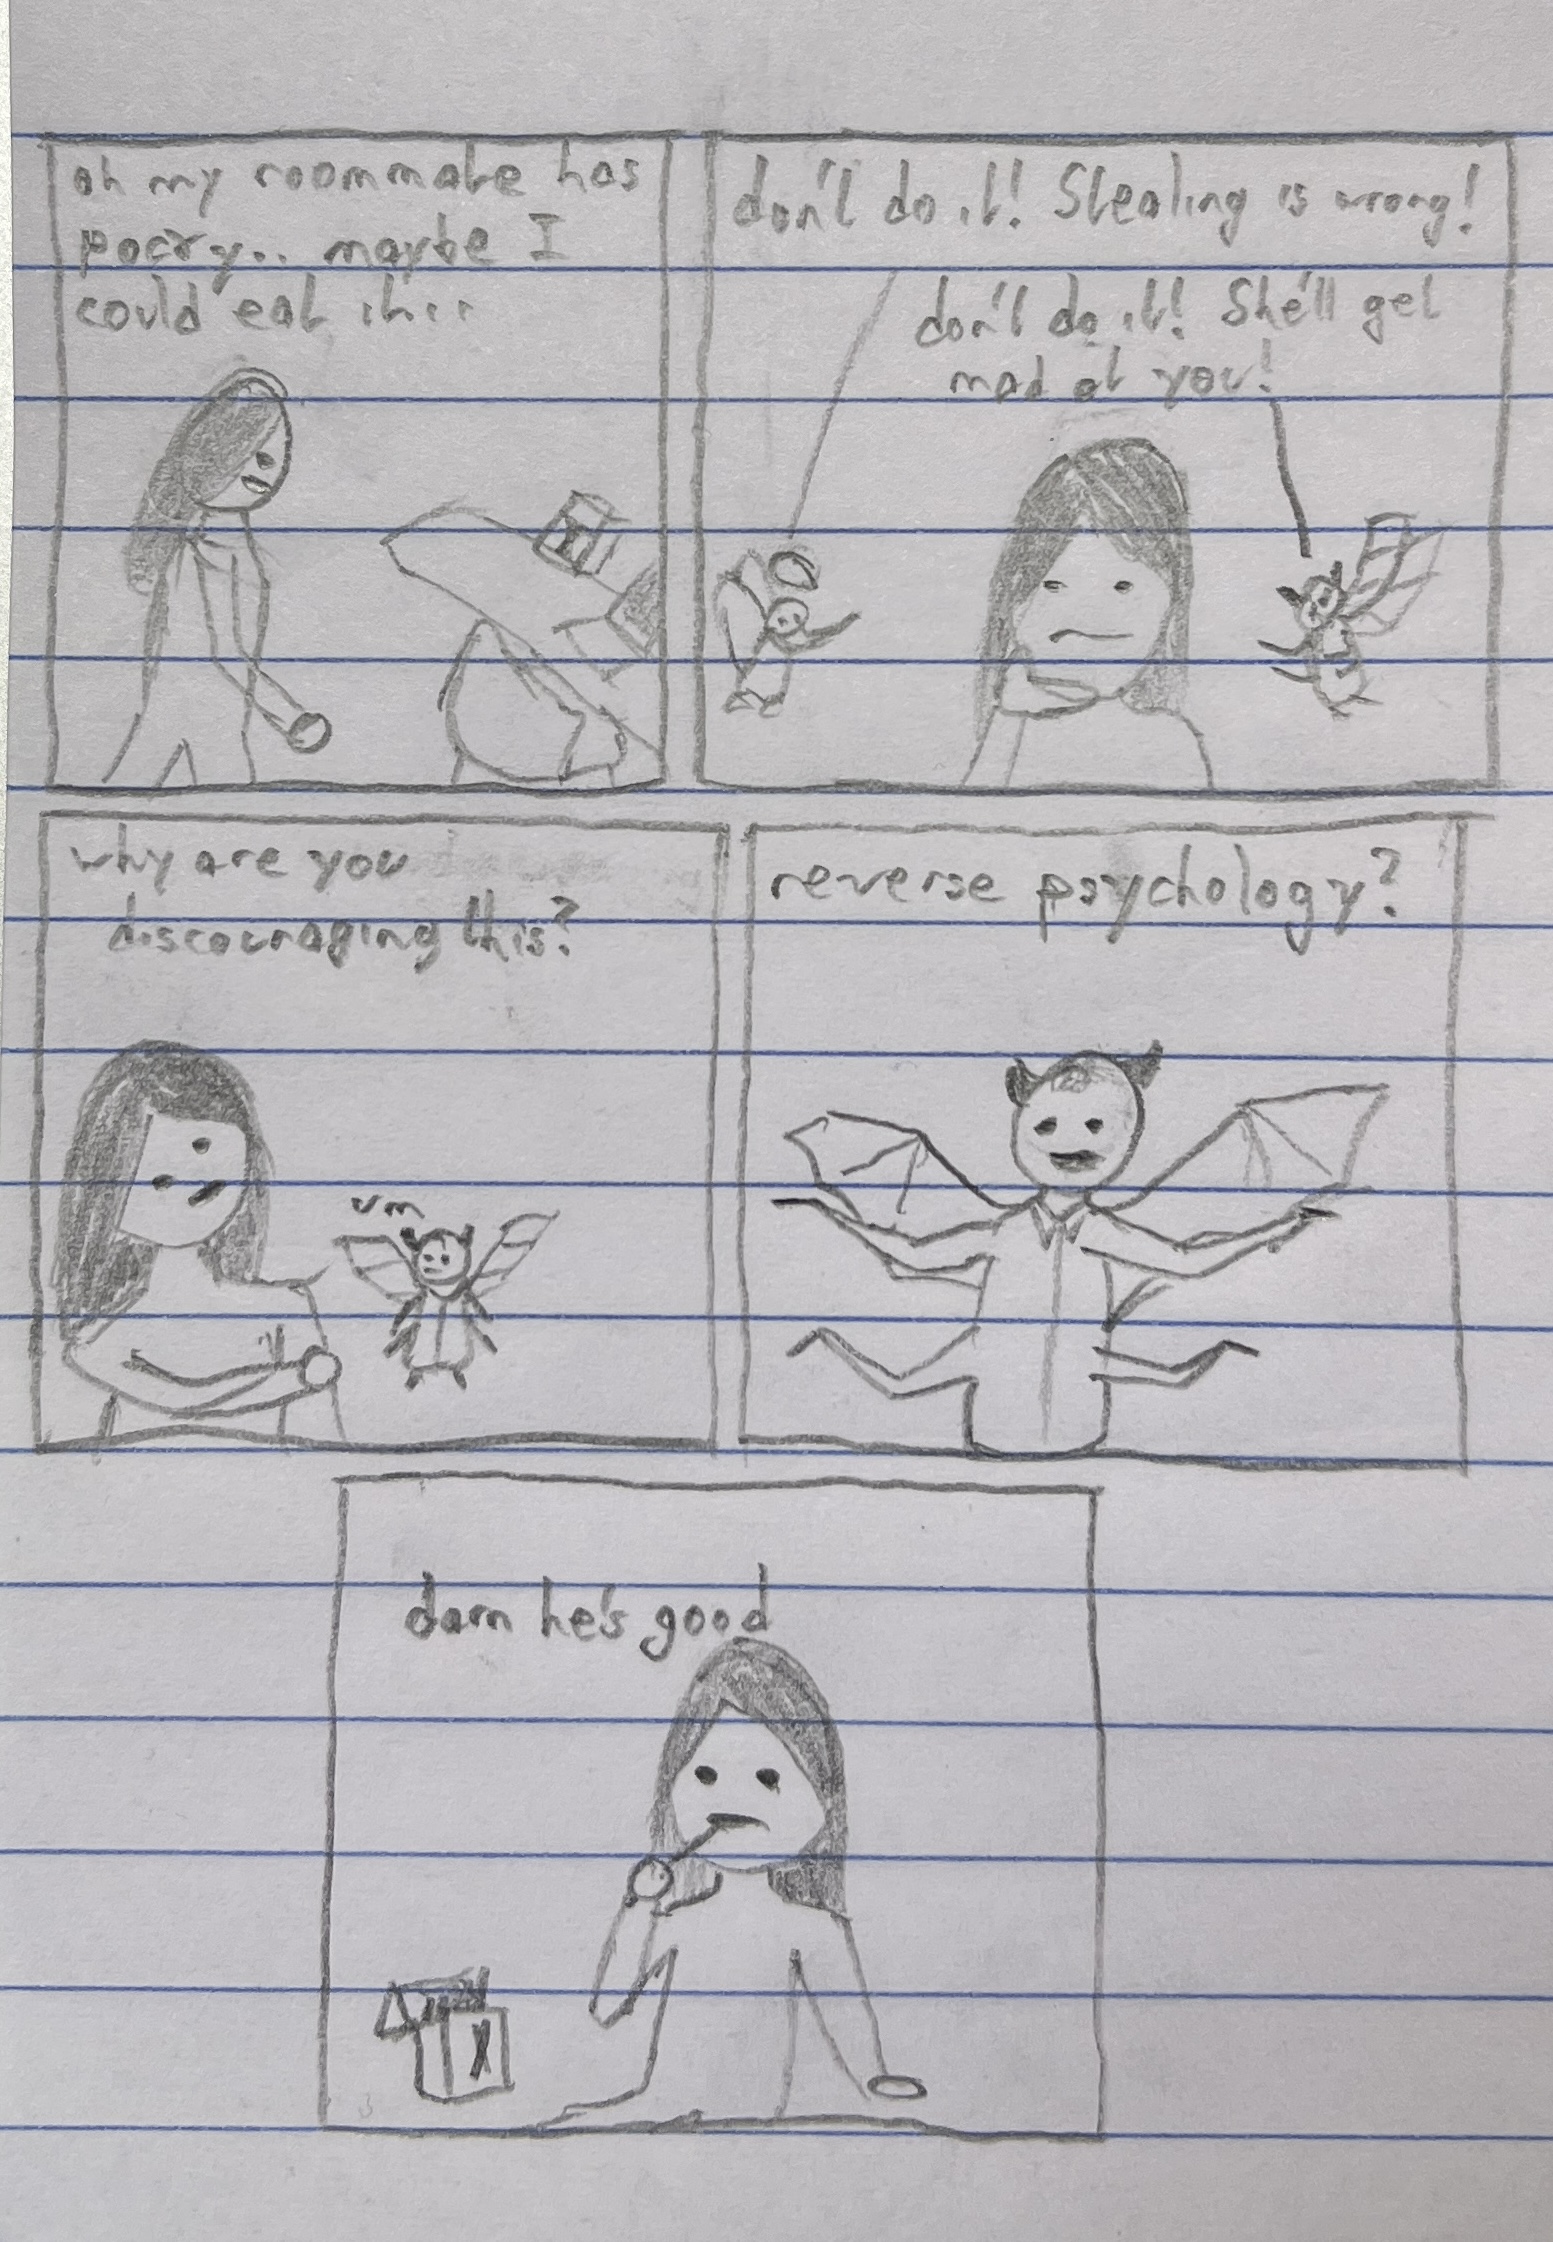 oh my roommate has
pocky.. maybe I
could eat it...
don't do it! Stealing is wrong!
don't do it! She'll get
mad at you!
why are you
discouraging this?
um
reverse psychology?
damn he's good